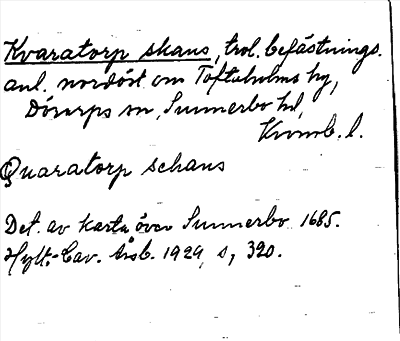 Kvaratorp skans, trol. befästnings.
anl. nordöst om Toftaholms hg,
Dörarps sn, Sunnerbo hd,
Kronob. l.
Quaratorp schans
Det. av karta över Sunnerbo 1685.
Hylt.-Cav. Årsb. 1929, s, 320.